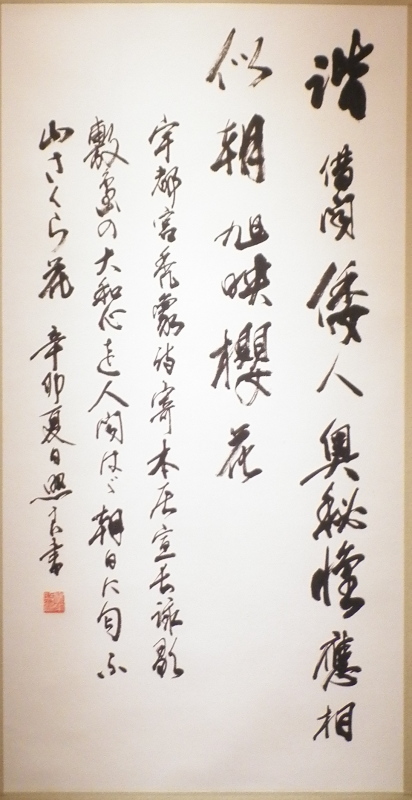 諧借問倭人奥秘懐應相
似朝旭映櫻花
宇都宮象詩寄本居宣長詠歌
敷島の大和心を人問はゞ朝日に匂ふ
山さくら花 辛卯夏日照書